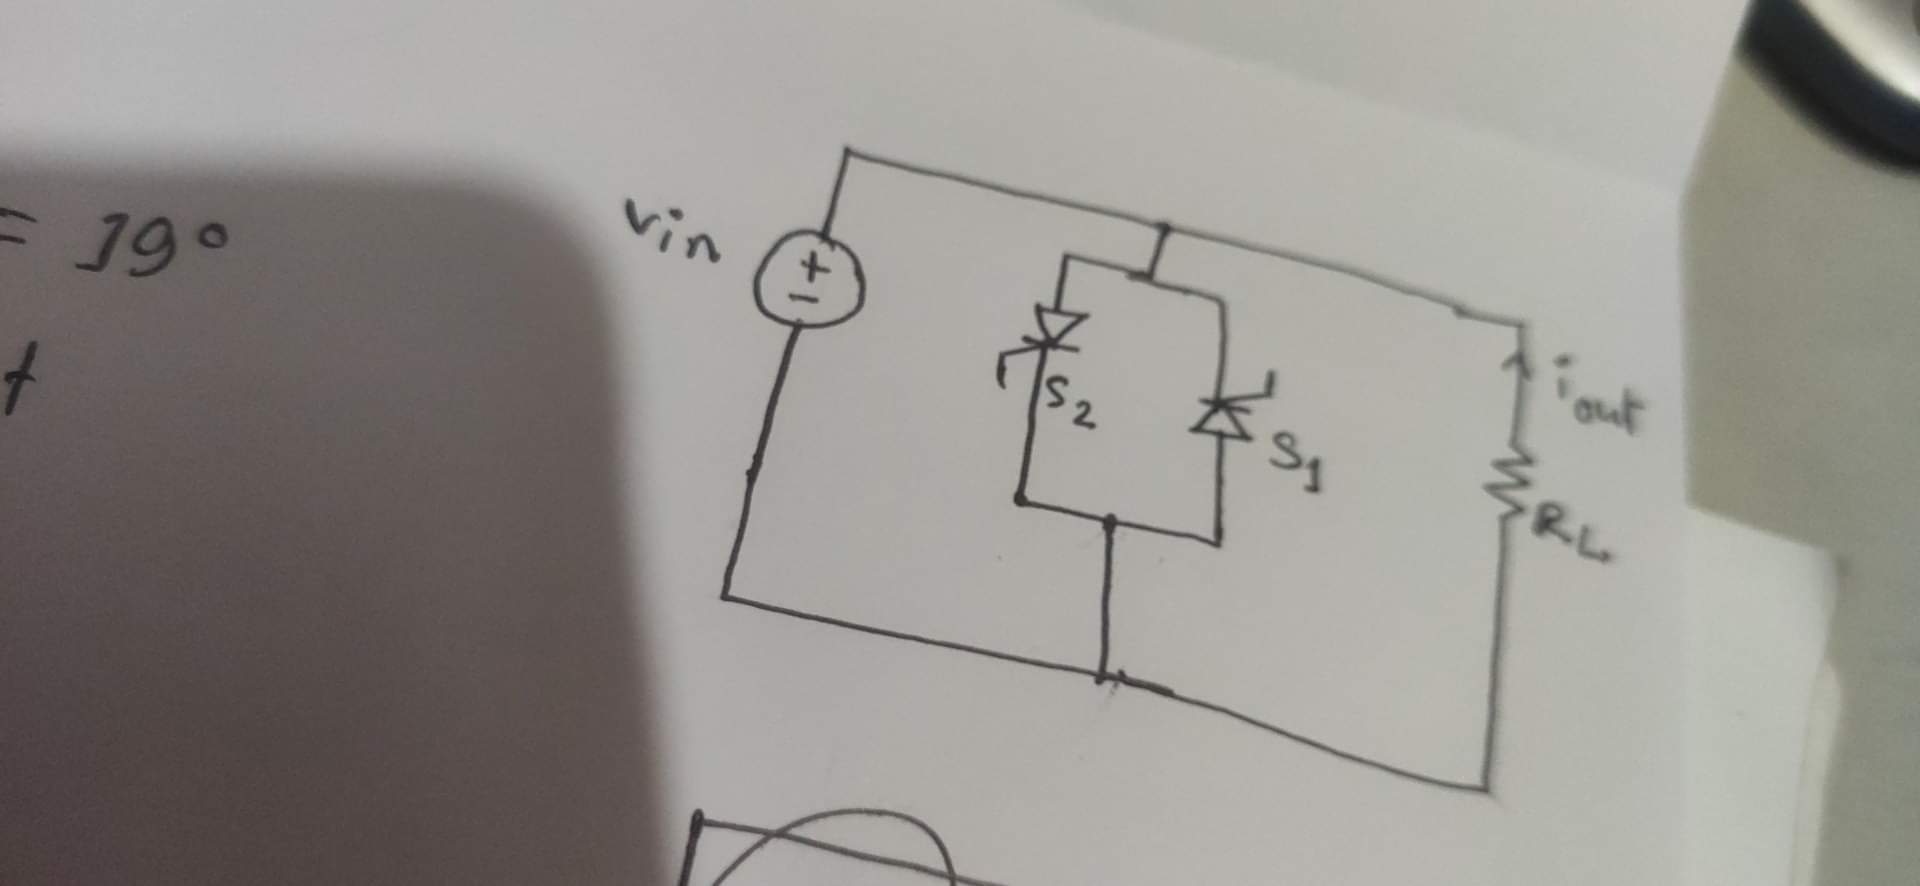 = 19°
t
vin
+
−
S2
S1
iout
RL